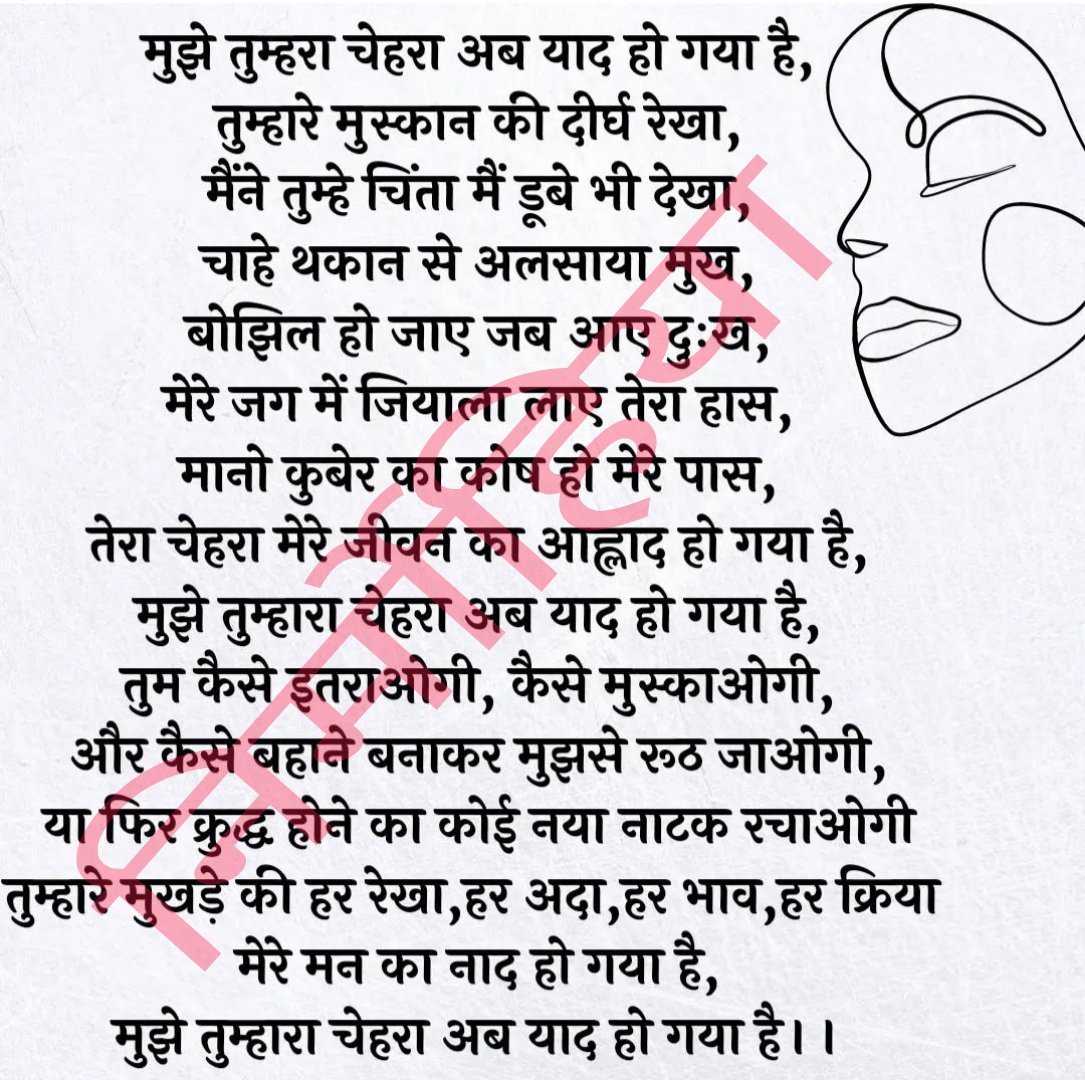 मुझे तुम्हरा चेहरा अब याद हो गया है,
तुम्हारे मुस्कान की दीर्घ रेखा,
मैंने तुम्हे चिंता मैं डूबे भी देखा,
चाहे थकान से अलसाया मुख,
बोझिल हो जाए जब आए दुःख,
मेरे जग में जियाला लाए तेरा हास,
मानो कुबेर का कोष हो मेरे पास,
तेरा चेहरा मेरे जीवन का आह्लाद हो गया है,
मुझे तुम्हारा चेहरा अब याद हो गया है,
तुम कैसे इतराओगी, कैसे मुस्काओगी,
और कैसे बहाने बनाकर मुझसे रूठ जाओगी,
या फिर क्रुद्ध होने का कोई नया नाटक रचाओगी
तुम्हारे मुखड़े की हर रेखा,हर अदा,हर भाव,हर क्रिया
मेरे मन का नाद हो गया है,
मुझे तुम्हारा चेहरा अब याद हो गया है।।
निर्मोहिया